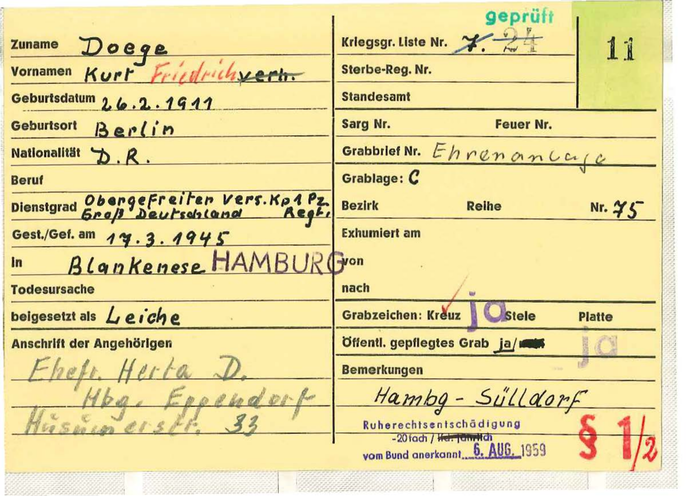 geprüft
Zuname Doege
Vornamen Kurt Friedrich verh.
Geburtsdatum 26.2.1911
Geburtsort Berlin
Nationalität D.R.
Beruf
Dienstgrad Obergefreiter Vers.Kp 1 Pz
Groß Deutschland Regt.
Gest./Gef. am 17.3.1945
In Blankenese HAMBURG
Todesursache
beigesetzt als Leiche
Anschrift der Angehörigen
Ehefr. Herta D.
Hbg. Eppendorf
Husumerstr. 33
Kriegsgr. Liste Nr. 7. 24
11
Sterbe-Reg. Nr.
Standesamt
Sarg Nr. Feuer Nr.
Grabbrief Nr. Ehrenanlage
Grablage: C
Bezirk Reihe Nr. 75
Exhumiert am
von
nach
Grabzeichen: Kreuz ja Stele Platte
Öffentl. gepflegtes Grab ja/ ja
Bemerkungen
Hambg - Sülldorf
Ruherechtsentschädigung
-20fach / lfd. jährlich
vom Bund anerkannt 6. AUG. 1959
§ 1/2